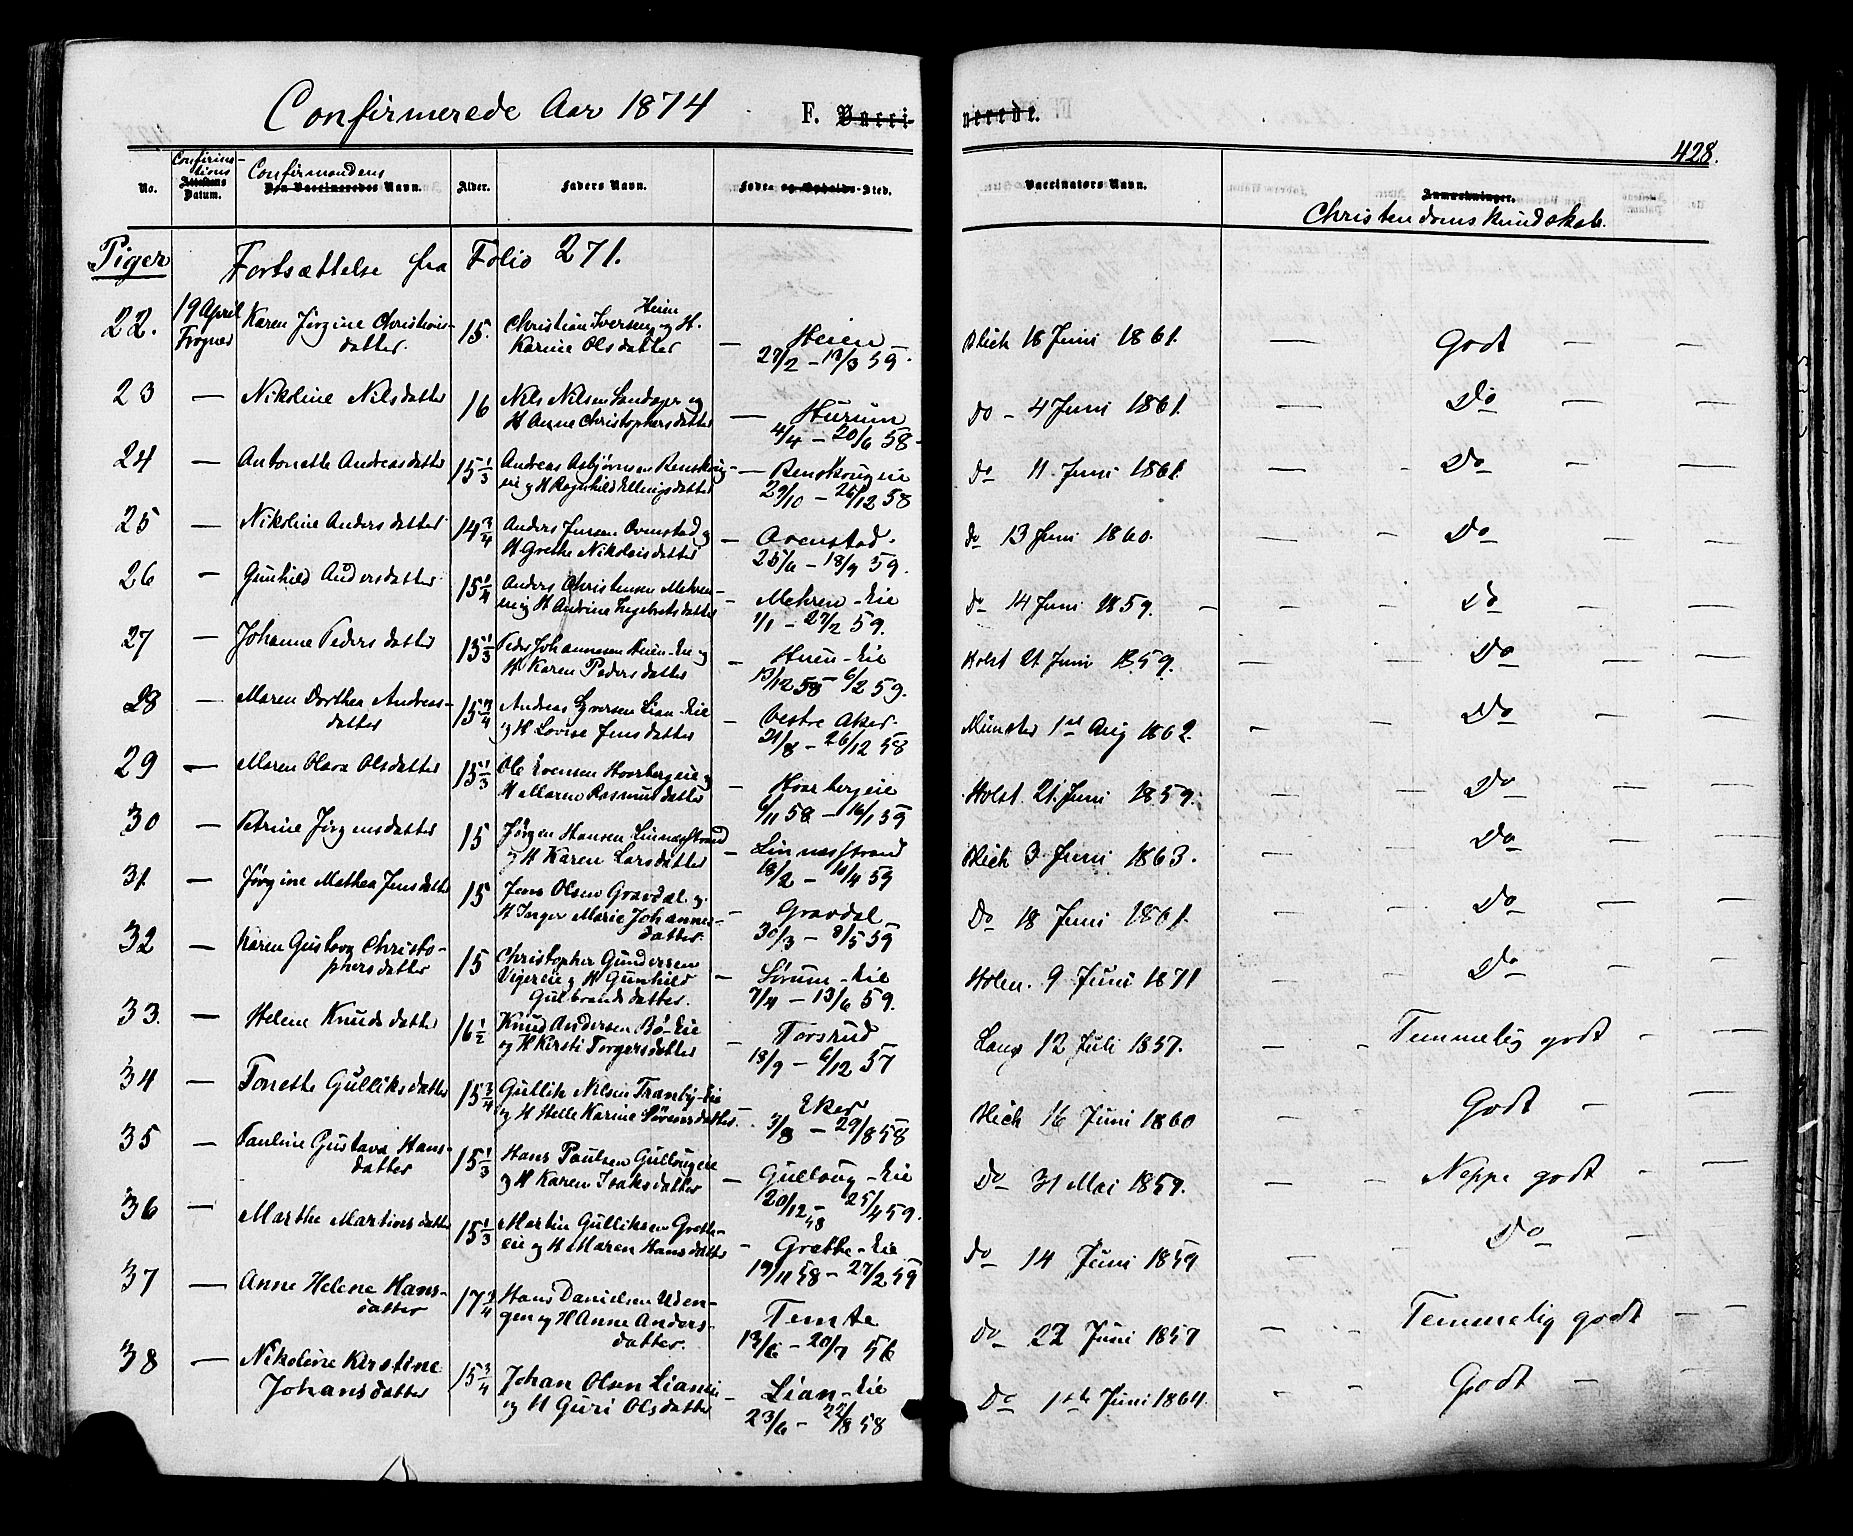 Confirmerede Aar 1874
F. Vaccinerede.
428.
No.
Confirmations
Attestens Datum.
Confirmandens
Den Vaccineredes Navn.
Alder.
Faders Navn.
Føde- og Opholds-Sted.
Vaccinators Navn.
Anmærkninger.
Christendomskundskab.
Piger Fortsættelse fra Folio 271.
22. 19 April Frogner Karen Jørgine Christiansdatter. 15. Christian Iversen Heien og H. Karine Olsdatter — Heien 27/2 — 13/3 59. Blich 18 Juni 1861. — Godt — —
23 — Nikoline Nilsdatter 16 Nils Nilsen og H Anne Christophersdatter — Hurum 4/4 — 20/6 58 Do — 4 Juni 1861. — Do — —
24 — Antonette Andreasdatter 15 1/3 Andreas Asbjørnsen Renskougeie og H Ragnhild Ellingsdatter — Renskougeie 29/10 — 26/12 58 Do 11. Juni 1861. — Do — —
25 — Nikoline Andersdatter 14 3/4 Anders Jensen Ovenstad og H Grethe Nikolaisdatter — Ovenstad. 25/6 — 18/9 59. Do 13 Juni 1860. — Do — —
26 — Gunhild Andersdatter 15 1/4 Anders Christensen Mehreneie og H Andrine Ingebretsdatter — Mehren-Eie 1/1 — 27/2 59. Do 14 Juni 1859. — Do — —
27 — Johanne Pedersdatter 15 1/3 Peder Johannesen Heien-Eie og H Karen Pedersdatter — Heien-Eie 13/12 58 — 6/2 59. Holst 21 Juni 1859. — Do — —
28 — Maren Dorthea Andreasdatter 15 3/4 Andreas Syversen Lian-Eie og H Lovise Jensdatter — Vestre Aker. 21/8 — 26/12 58 Münster 1st Aug 1862. — Do — —
29 — Maren Olava Olsdatter 15 1/3 Ole Evensen Hvarbergeie og H Maren Rasmusdatter — Hvarbergeie 6/11 58 — 16/1 59 Holst. 21. Juni 1859. — Do — —
30 — Petrine Jørgensdatter 15 Jørgen Hansen Linnæsstrand og H Karen Larsdatter — Linnæsstrand 18/2 — 10/4 59 Blich 3 Juni 1863. — Do — —
31. — Jørgine Mathea Jensdatter 15 Jens Olsen Gravdal og H Inger Marie Johannesdatter. — Gravdal 30/3 — 8/5 59 Do 18 Juni 1861. — Do — —
32 — Karen Gustava Christophersdatter 15 Christopher Gundersen Vigereie og H Gunhild Gulbrandsdatter. — Sørum-Eie 7/4 — 13/6 59. Holm. 9 Juni 1871 — Do — —
33. — Helene Knudsdatter 16 1/2 Knud Andersen Bø-Eie og H Kirsti Torgersdatter — Torsrud 18/9 — 6/12 57 Lang 12 Juli 1857. — Temmelig godt —
34 — Tonette Gulliksdatter 15 3/4 Gullik Nilsen Tranby-Eie og H Helle Karine Sørensdatter. — Eker 3/8 — 29/8 58 Blich 16 Juni 1860 — Godt — —
35 — Pauline Gustava Hansdatter 15 1/3 Hans Paulsen Gullougeie og H Karen Isaksdatter — Gulloug-Eie 20/12 58 — 25/4 59. Do 31 Mai 1859. — Neppe godt — —
36 — Marthe Martinsdatter 15 1/3 Martin Gulliksen Gretteeie og H Maren Hansdatter — Grette-Eie 19/11 58 — 27/2 59 Do 14 Juni 1859 — Do — —
37 — Anne Helene Hansdatter 17 3/4 Hans Danielsen Udengen og H Anne Andersdatter. Temte 13/6 — 20/7 56 Do 22 Juni 1857 — Temmelig godt — —
38 — Nikoline Kirstine Johansdatter 15 3/4 Johan Olsen Lianeie og H Guri Olsdatter — Lian-Eie 23/6 — 22/8 58 Do 1ste Juni 1864. — Godt —